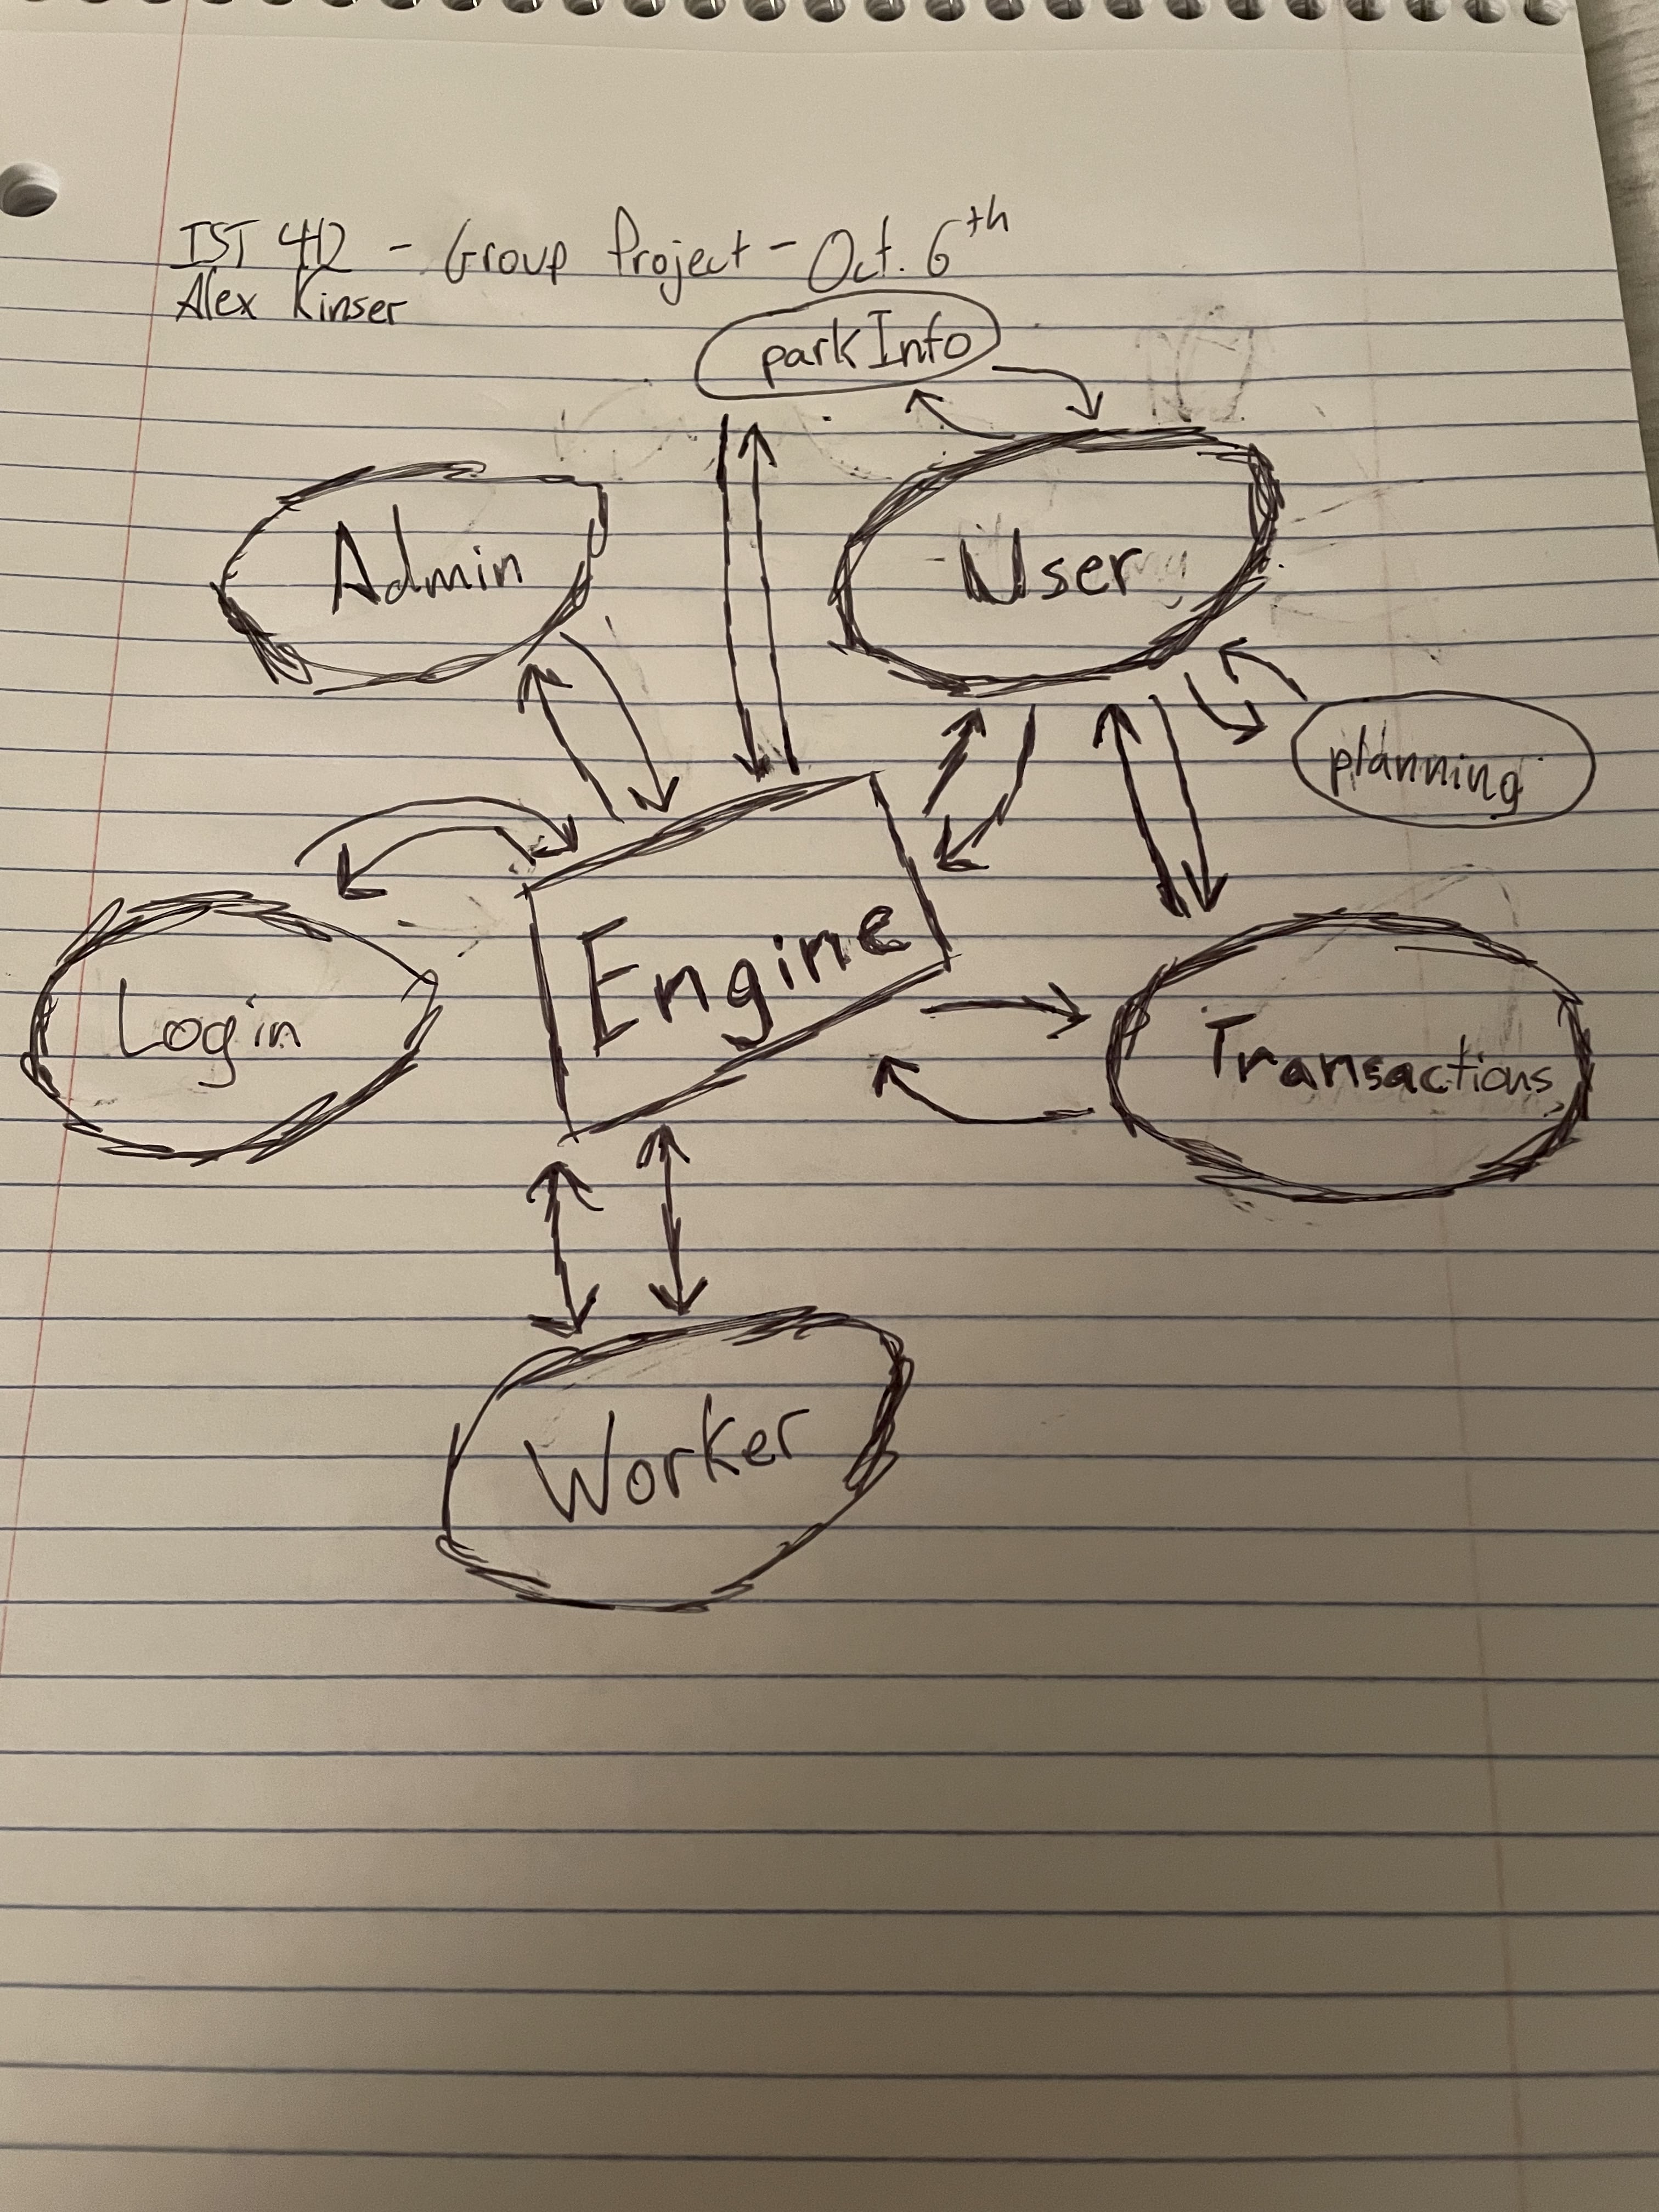 IST 412 - Group Project - Oct. 6th
Alex Kinser
parkInfo
Admin
User
planning
Engine
Login
Transactions
Worker